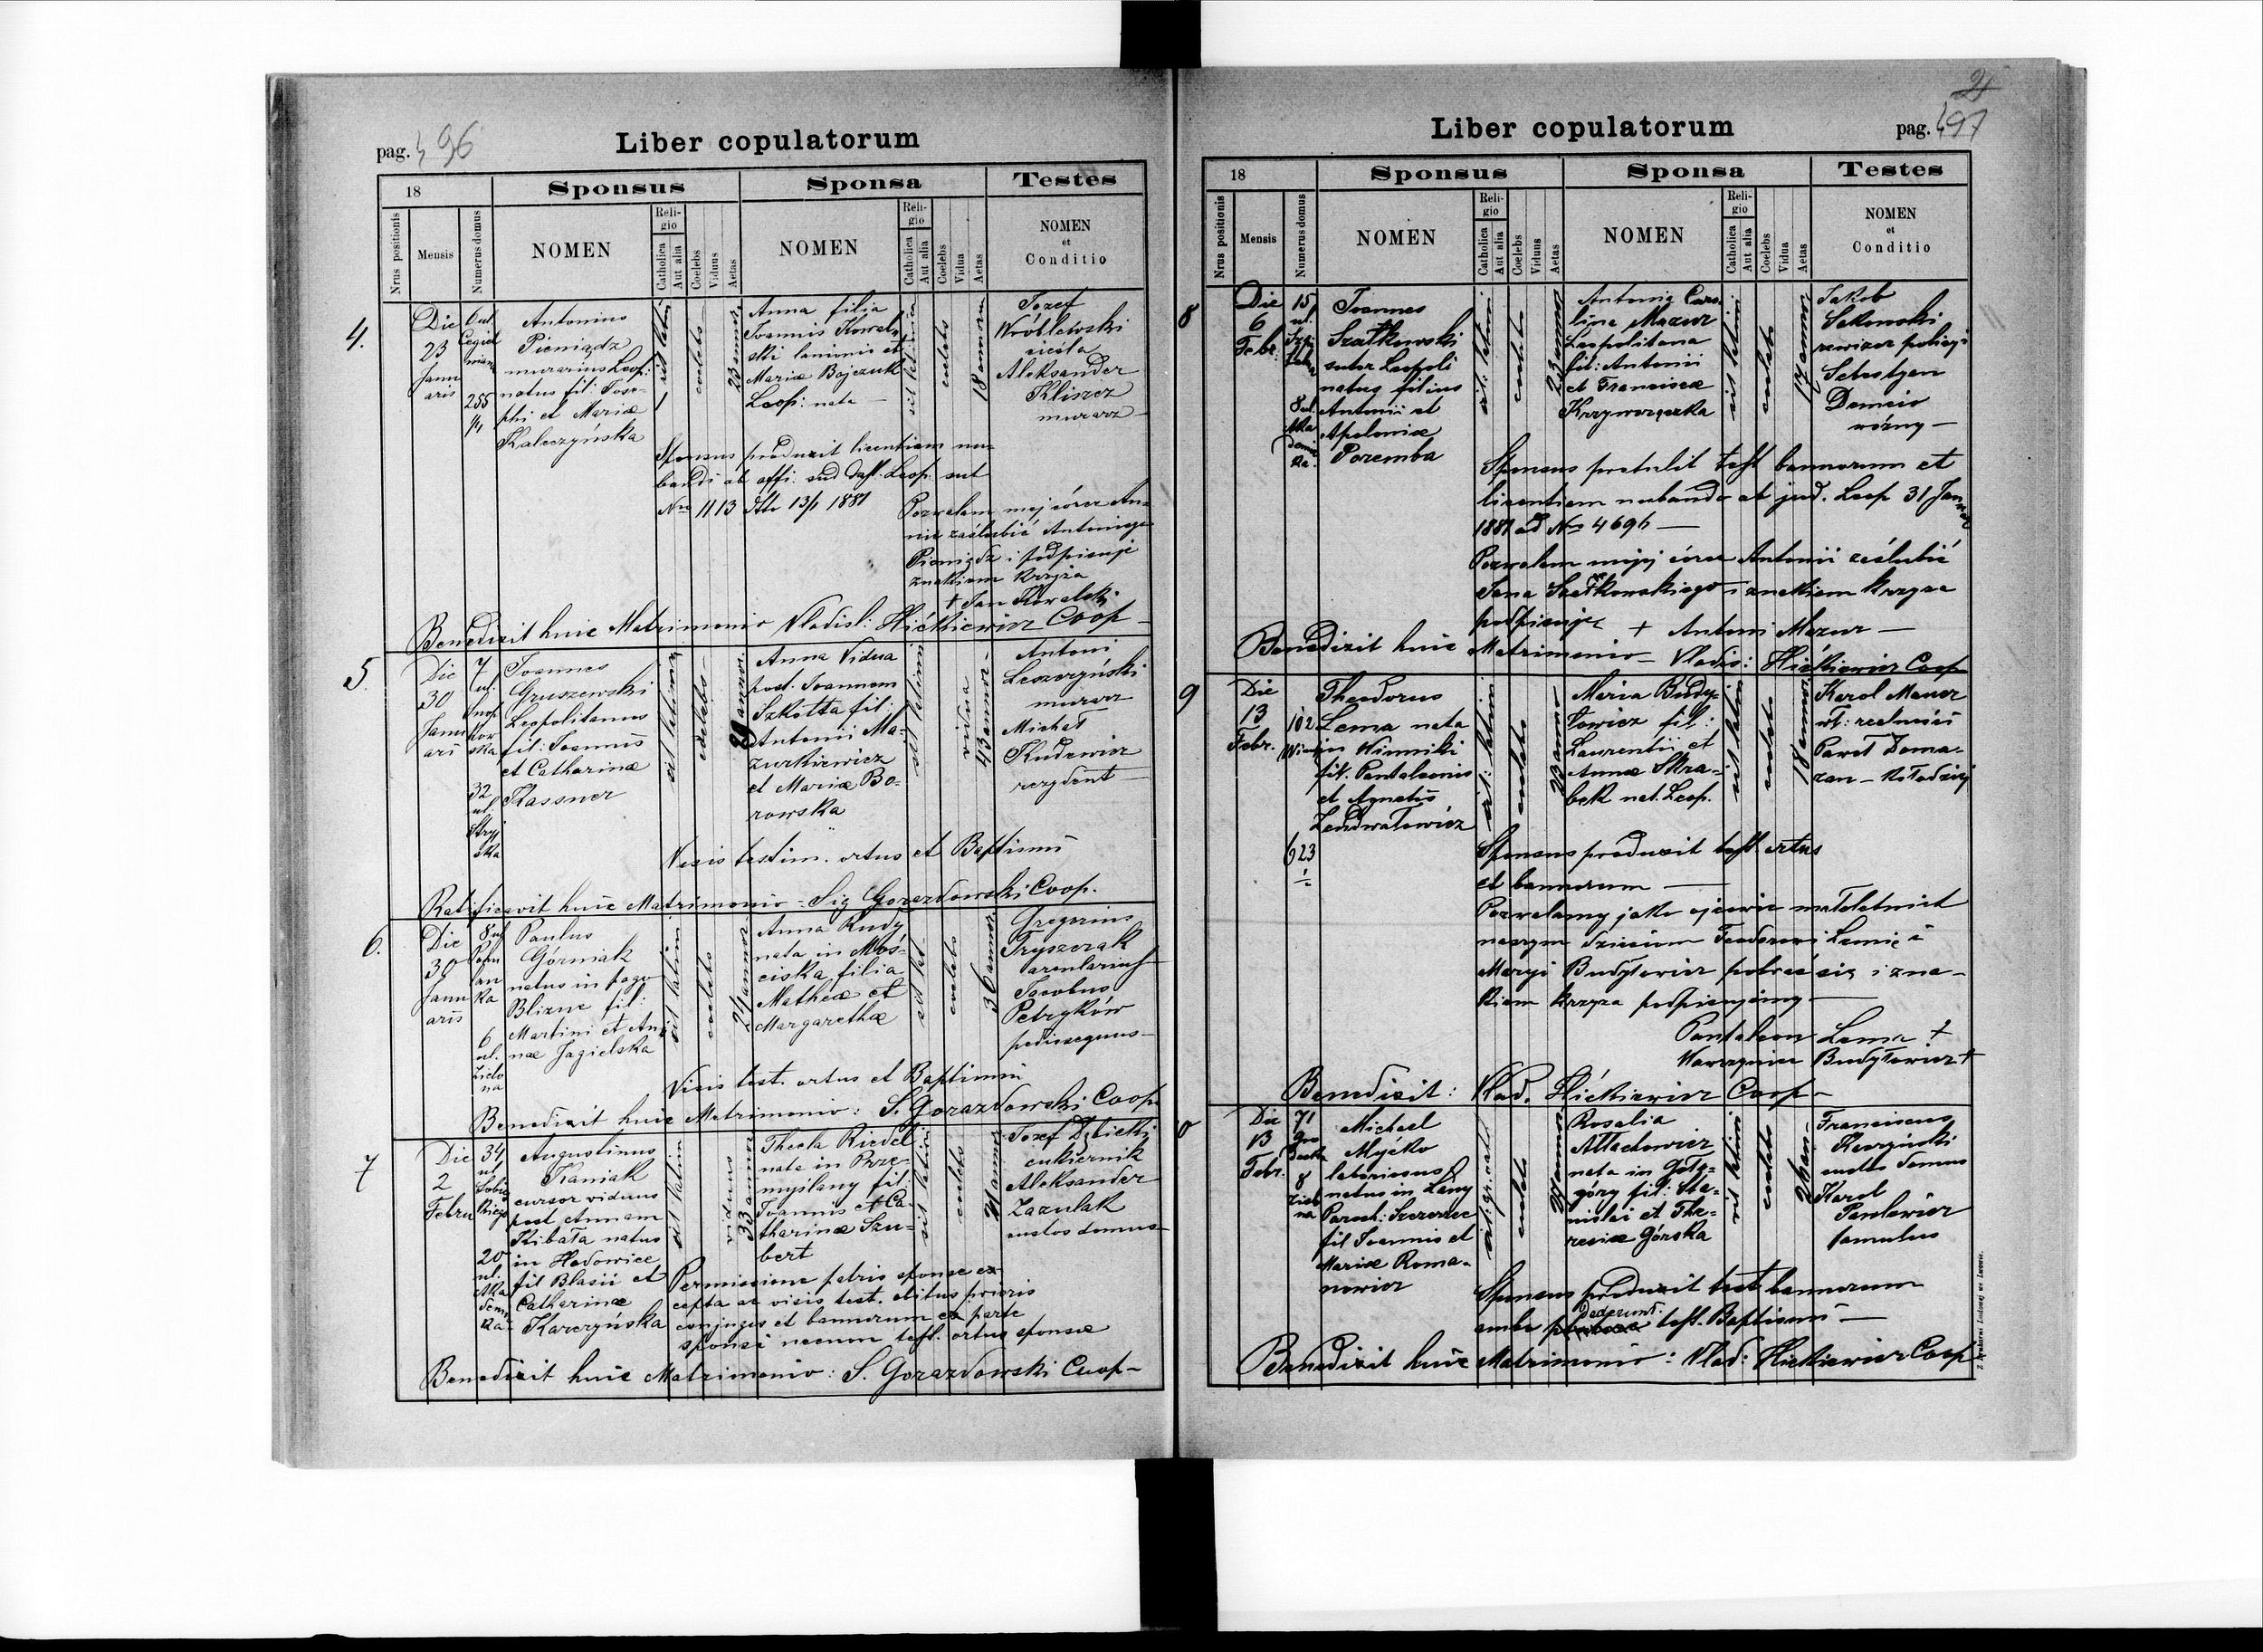 pag. 496
Liber copulatorum
18
Sponsus
Sponsa
Testes
Nrus positionis
Mensis
Numerus domus
NOMEN
Religio
Catholica
Aut alia
Coelebs
Viduus
Aetas
NOMEN
Religio
Catholica
Aut alia
Coelebs
Vidua
Aetas
NOMEN
et
Conditio
4.
Die
23
Janu
aris
255
Antonius
Pieniądz
murarius Leop:
natus fil: Jose-
phi et Mariæ
Kaleczyńska
rit latin
coelebs
23 annor
Anna filia
Joannis Kowal-
ski lanionis et
Mariæ Bojczuk
Leop: nata
rit latin
coelebs
18 annor
Jozef
Wróblewski
cieśla
Aleksander
Kliszcz
murarz
Sponsus produxit licentiam nu-
bandi ab offi. sud. del. Leop.
Nro 1113 dtto 13/1 1881
Pozwalam mej córce An-
nie zaślubić Antoniego
Pieniądz i podpisuję
znakiem krzyża
+ Jan Kowalski
Benedixit huic Matrimonio Vladisl: Hićkiewicz Coop
5.
Die
30
Janu
ari
7
ul.
Snop
kow
ska
32
ul.
Stryj
ska
Joannes
Gruszewski
Leopolitanus
fil: Joannis
et Catharinæ
Klassner
rit latin
coelebs
29 annor.
Anna Vidua
post. Joannem
Szkotta fil:
Antonii Ma-
zurkiewicz
et Mariæ Bo-
rowska
rit latin
vidua
43 annor
Antoni
Leszczyński
murarz
Michał
Kudewicz
rezydent
Visis testim. ortus et Baptismi
Ratificavit huic Matrimonio - Sig Gorazdowski Coop.
6.
Die
30
Janu
aris
6
ul.
Zielo
na
Paulus
Górniak
natus in pago
Blizne fil:
Martini et An-
næ Jagielska
rit latin
coelebs
24 annor
Anna Rudy
nata in Moś-
ciska filia
Mathæ et
Margarethæ
rit lat
coelebs
36 annor
Gregorius
Tryszczak
Jacobus
Petryków
pedisequus
Visis test. ortus et Baptismi
Benedixit huic Matrimonio: S. Gorazdowski Coop
7
Die
2
Febru
34
ul
Sobie
skiego
20
ul.
Aka
demi
cka
Augustinus
Kaniak
cursor viduus
post Annam
Kibała natus
in Hodowice
fil Blasii et
Catharinæ
Karczyńska
rit latin
viduus
33 annor
Thecla Riedel
nata in Prze-
myślany fil.
Joannis et Ca-
tharinæ Szu-
bert
rit latin
coelebs
21 annor
Jozef Dzbicki
cukiernik
Aleksander
Zazulak
custos domus
Permissione patris sponse ex-
cepta ac visis test. obitus prioris
conjugis et bannorum ex parte
sponsi necnon test. ortus sponsæ
Benedixit huic Matrimonio: S. Gorazdowski Coop-
2
Liber copulatorum
pag. 497
18
Sponsus
Sponsa
Testes
Nrus positionis
Mensis
Numerus domus
NOMEN
Religio
Catholica
Aut alia
Coelebs
Viduus
Aetas
NOMEN
Religio
Catholica
Aut alia
Coelebs
Vidua
Aetas
NOMEN
et
Conditio
8
Die
6
Febr.
15
ul.
8 ul.
Aka
demic
ka
Joannes
Szatkowski
sutor Leopoli
natus filius
Antonii et
Apoloniæ
Poremba
rit: latin
coelebs
23 annor
Antonia Caro-
lina Mazur
Leopolitana
fil: Antonii
et Franciscæ
Krzyworączka
rit latin
coelebs
17 annor
Jakob
Sakowski
rewizor policyi
Sebastyan
Demcio
woźny
Sponsus protulit test bannorum et
licentiam nubando at jud. Leop 31 Janua
1881 ad Nro 4696
Pozwalam mojej córce Antonii zaślubić
Jana Szatkowskiego i znakiem krzyża
podpisuję + Antoni Mazur
Benedixit huic Matrimonio - Vladis: Hićkiewicz Coop
9
Die
13
Febr.
102
Win
623
Theodorus
Lema nata
in Winniki
fil. Pantaleonis
et Agnetis
Lendwałowicz
rit: latin
coelebs
23 annor
Maria Budy-
łowicz fil:
Laurentii et
Annæ Skra-
bek nat. Leop.
rit latin
coelebs
18 annor.
Karol Mauer
wł: realności
Paweł Doma-
zan - Kołodziej
Sponsus produxit test. ortus
et bannorum
Pozwalamy jako ojcowie małoletnich
naszym dzieciom Teodorowi Lemie i
Maryi Budyłowicz pobrać się i zna-
kiem krzyża podpisujemy
Pantaleon Lema +
Wawrzyniec Budyłowicz +
Benedixit: Vlad. Hićkiewicz Coop-
0
Die
13
Febr.
71
Gro
decka
8
Zielo
na
Michael
Myćko
laboriosus
natus in Lany
Paroch: Szczerzec
fil Joannis et
Mariæ Roma-
nowicz
rit: gr. cath
coelebs
Rosalia
Attachowicz
nata in Goło-
góry fil: Sta-
nislai et The-
resiæ Górska
rit latin
coelebs
Franciscus
custos domus
Karol
Pawlewicz
famulus
Sponsus produxit test bannorum
ambo dederunt test. Baptismi
Benedixit huic Matrimonio: Vlad: Hickiewicz Coop